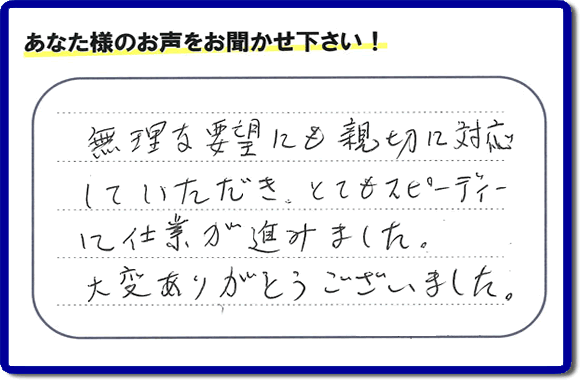 あなた様のお声をお聞かせ下さい！
無理な要望にも親切に対応
していただき、とてもスピーディー
に仕業が進みました。
大変ありがとうございました。